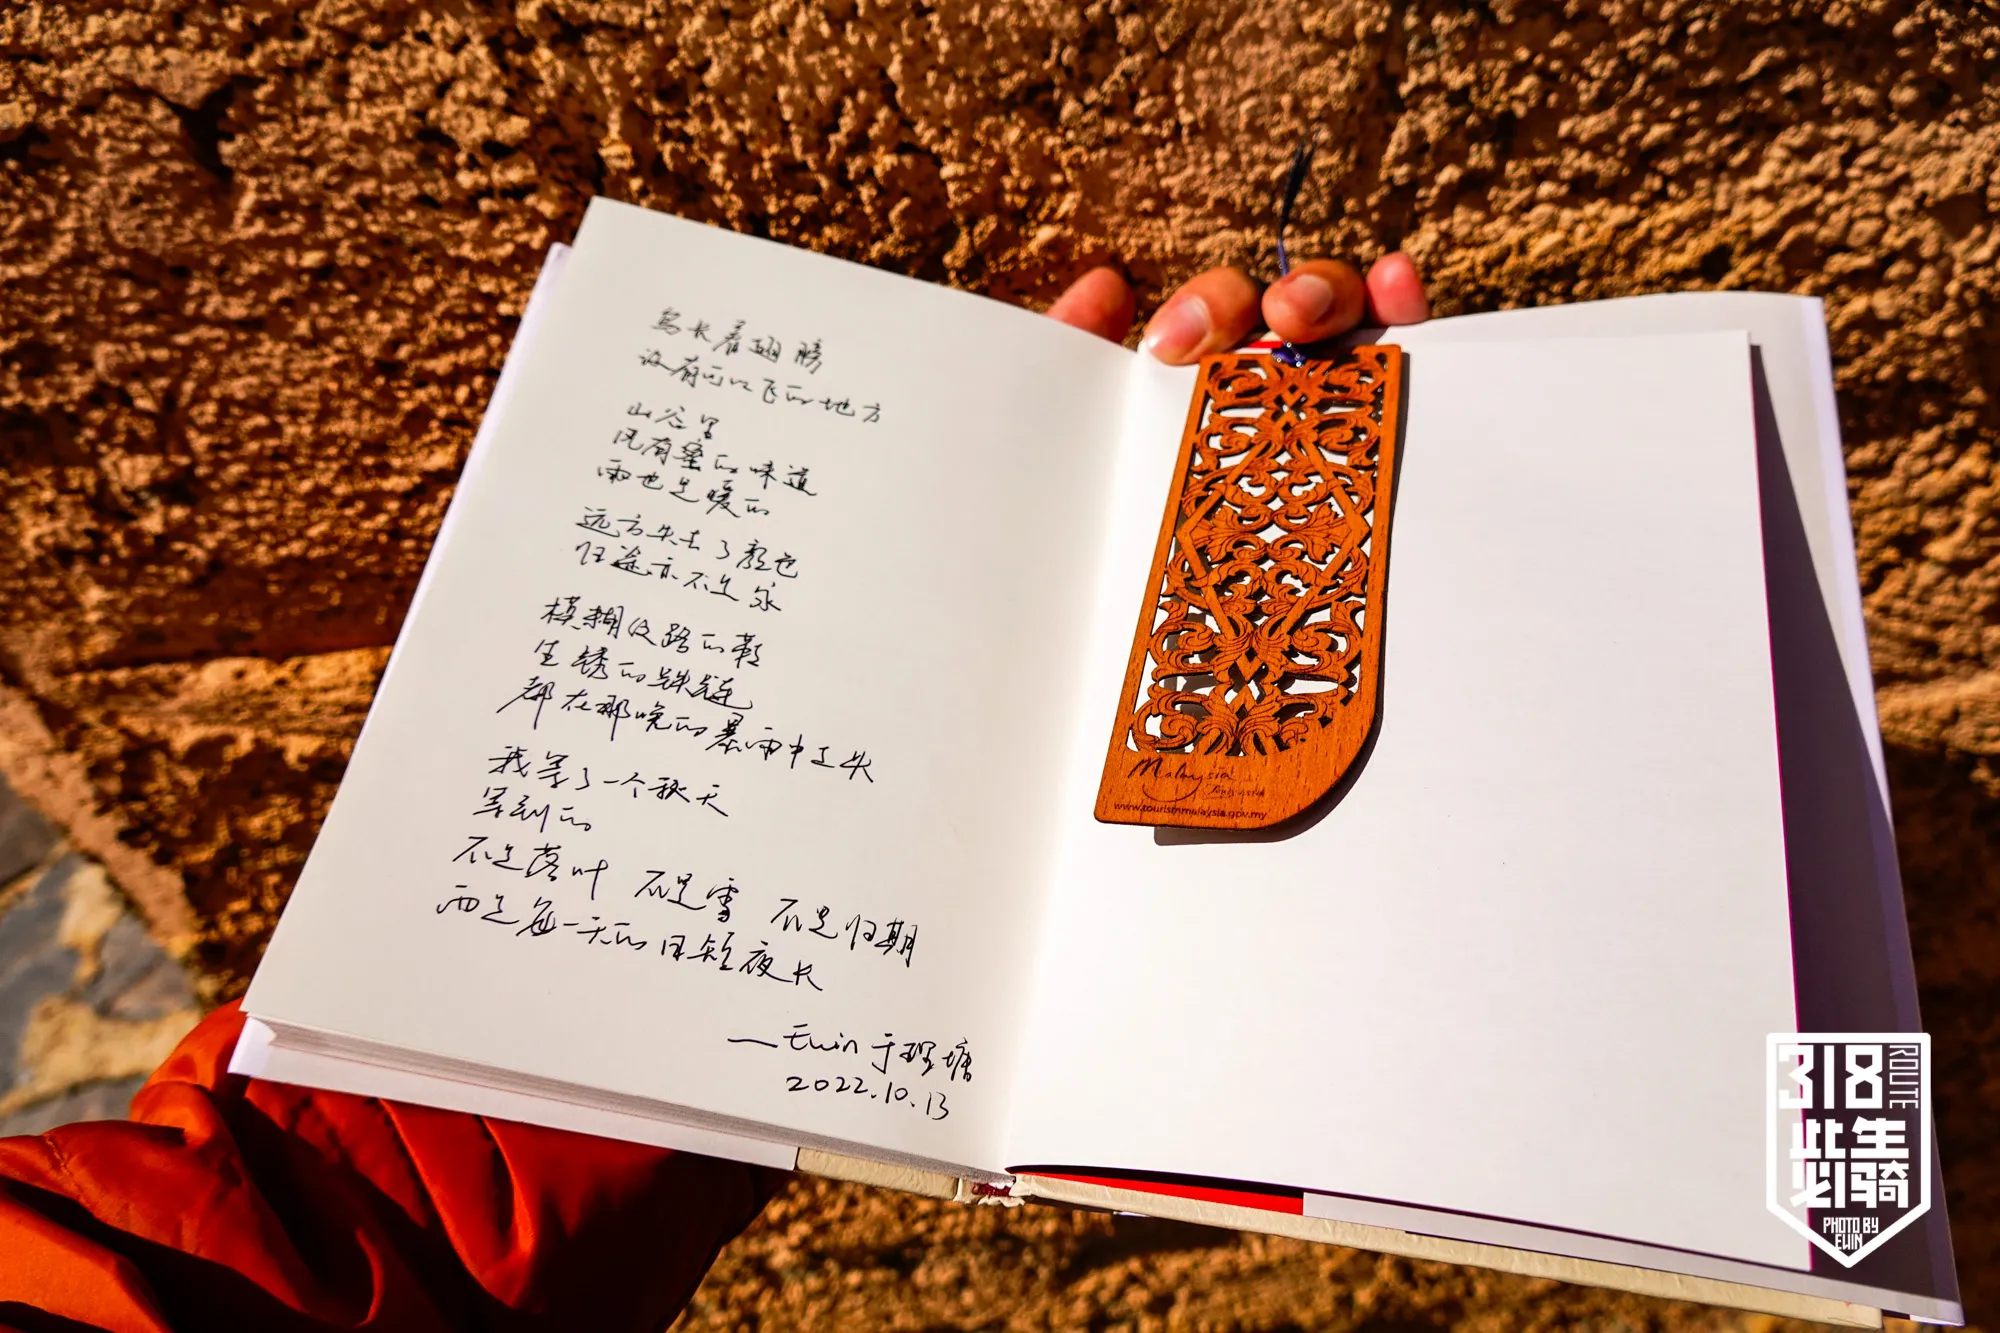 鸟长着翅膀
没有可以飞的地方
山谷里
风有蜜的味道
雨也是暖的
远方失去了颜色
归途亦不是家
模糊纹路的鞋
生锈的铁链
都在那晚的暴雨中丢失
我等了一个秋天
等到的
不是落叶 不是雪 不是归期
而是每一天的日短夜长
——Ewin 于理塘
2022.10.13
Malaysia
www.tourismmalaysia.gov.my
318 ROUTE
此生
必骑
PHOTO BY
EWIN